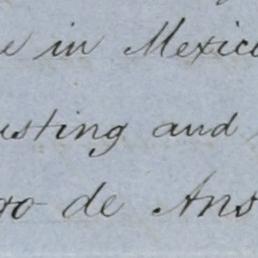 in Mexico
usting and
de Ans